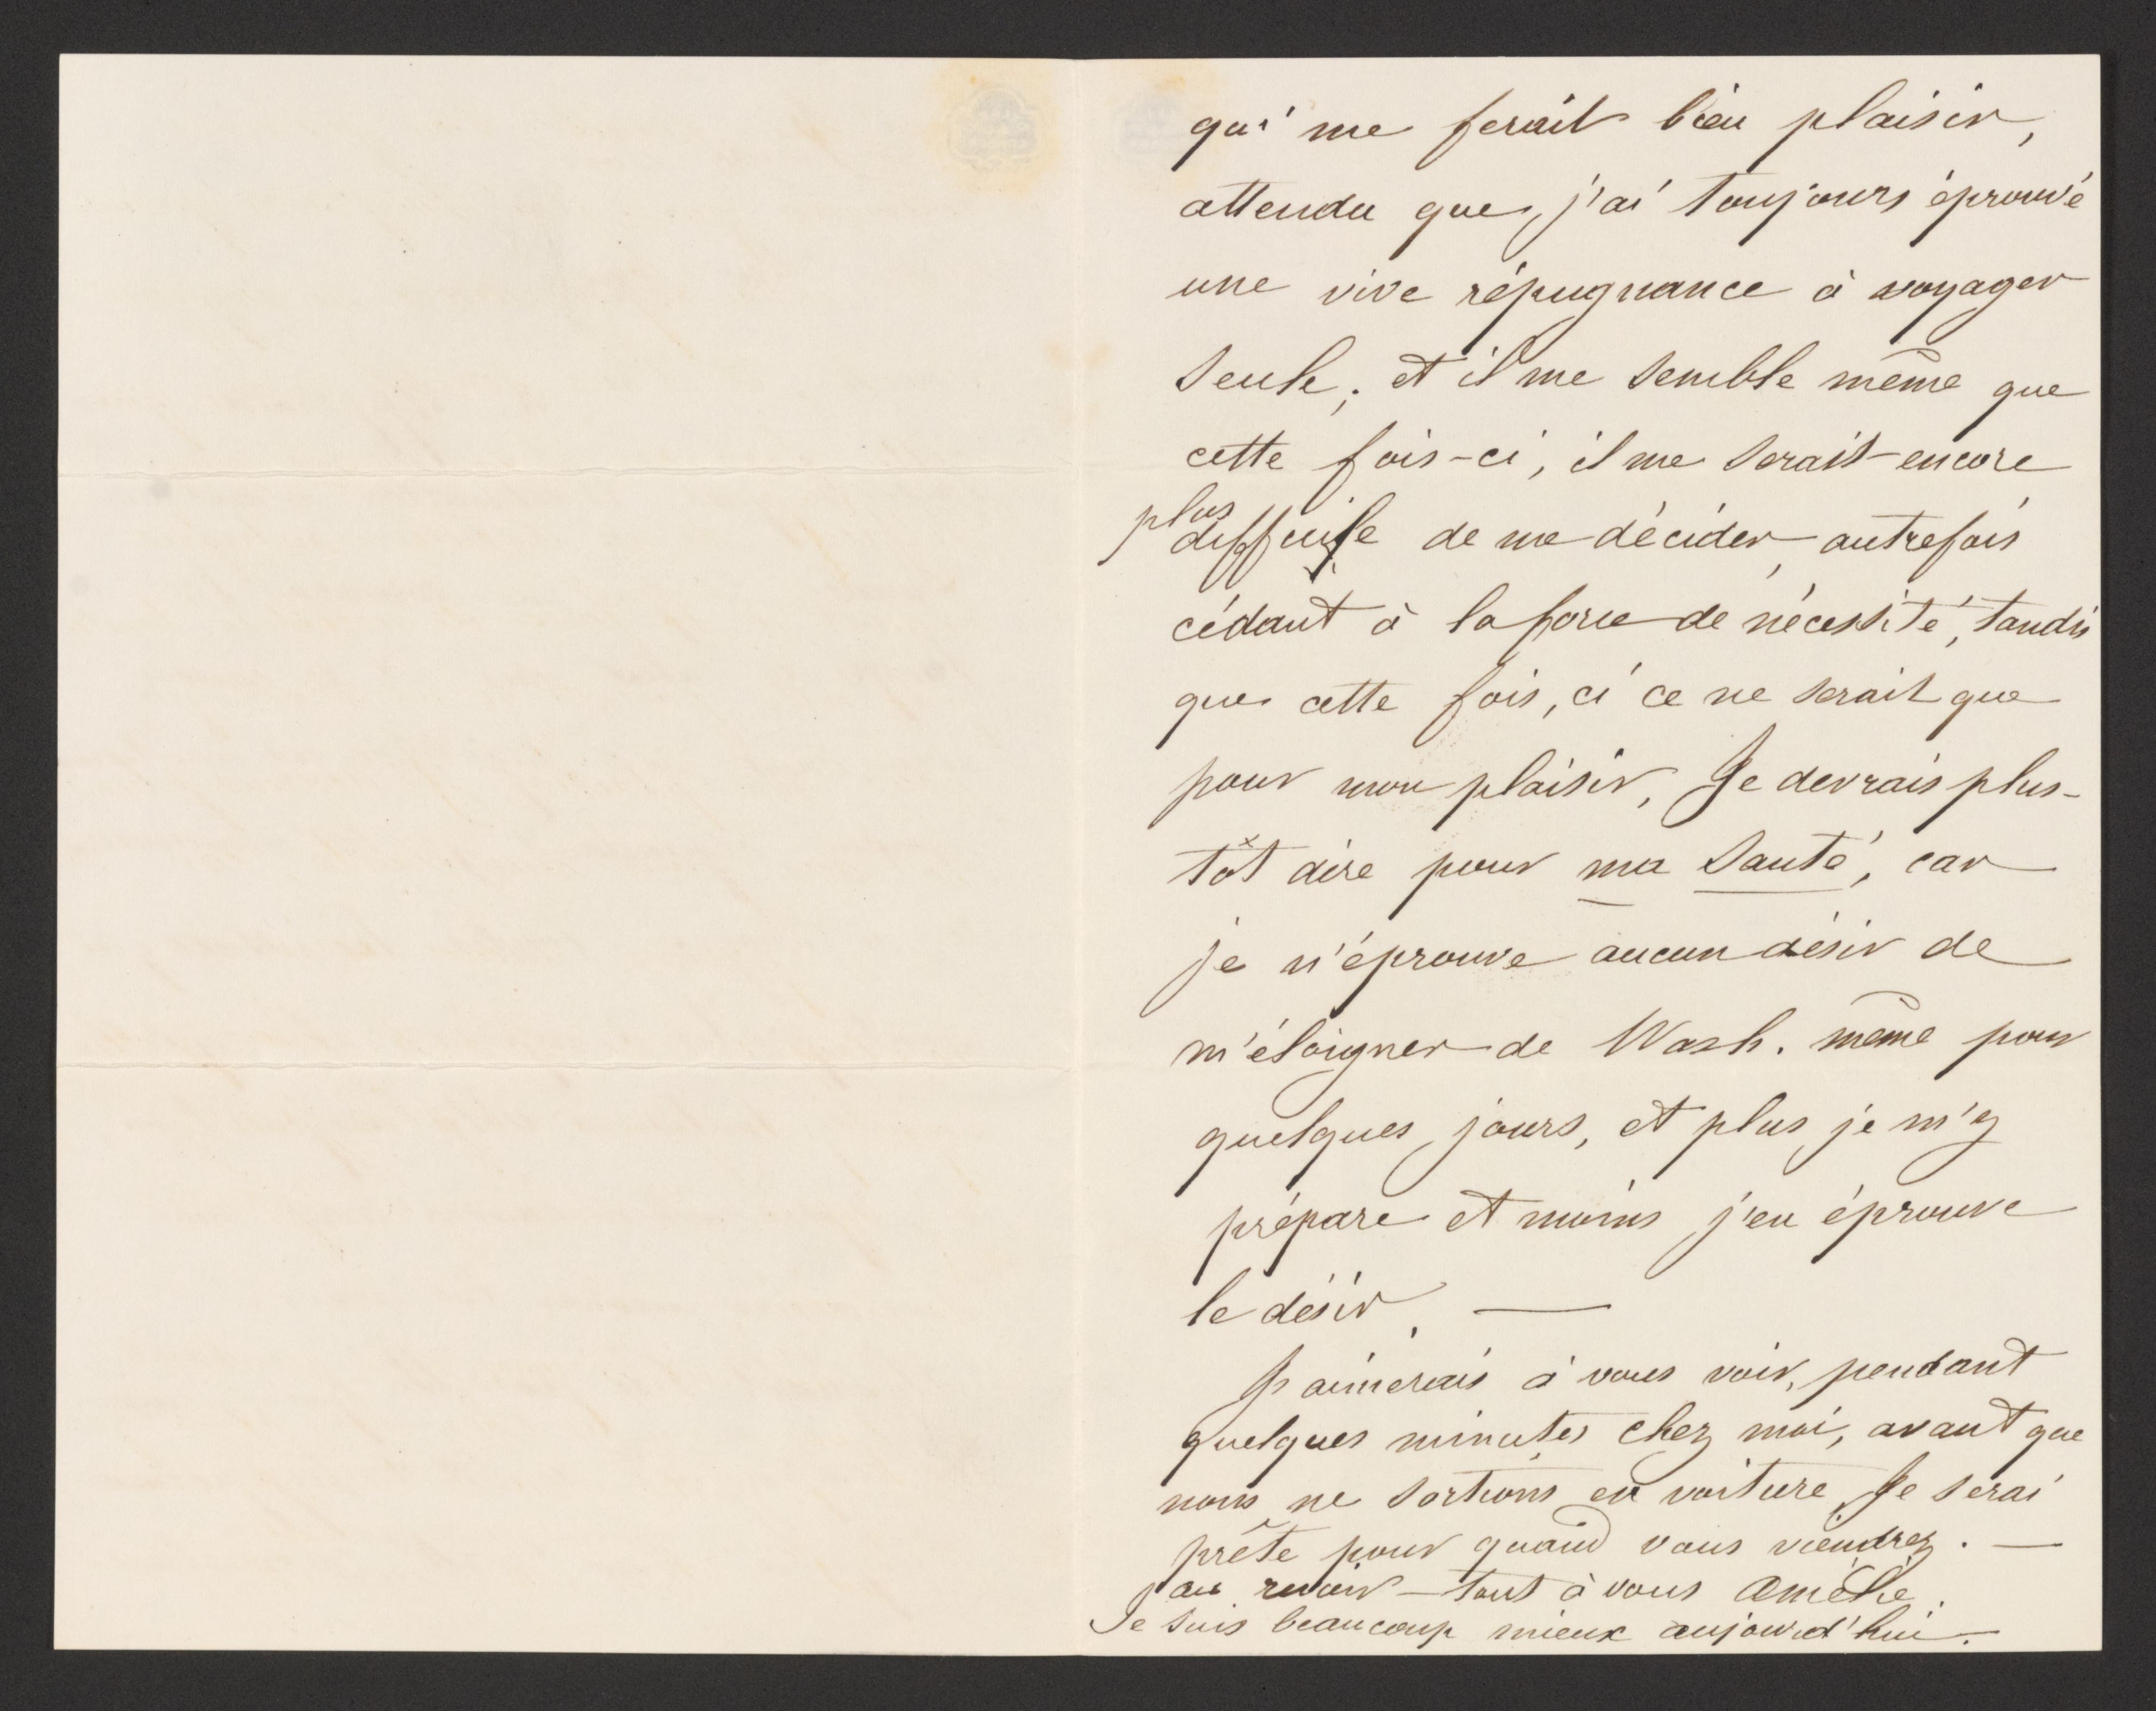 qui me ferait bien plaisir,
attendu que j'ai toujours éprouvé
une vive répugnance à voyager
seule; et il me semble même que
cette fois-ci, il me serait encore
plus
difficile de me décider, autrefois
cédant à la force de nécessité, tandis
que cette fois, ci ce ne serait que
pour mon plaisir, Je devrais plus-
tôt dire pour ma santé, car
je n'éprouve aucun désir de
m'éloigner de Wash. même pour
quelques jours, et plus je m'y
prépare et moins j'en éprouve
le désir. —
J'aimerais à vous voir, pendant
quelques minutes chez moi, avant que
nous ne sortions en voiture. Je serai
prête pour quand vous viendrez. —
au revoir — tout à vous Amélie.
Je suis beaucoup mieux aujourd'hui.